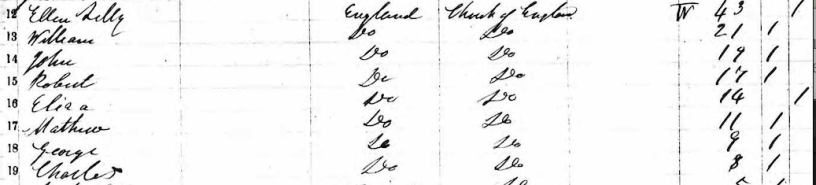 12 Ellen Selly England Church of England W 43 1
13 William Do Do 21 1
14 John Do Do 19 1
15 Robert Do Do 17 1
16 Eliza Do Do 14 1
17 Mathew Do Do 11 1
18 George Do Do 9 1
19 Charles Do Do 8 1
Do